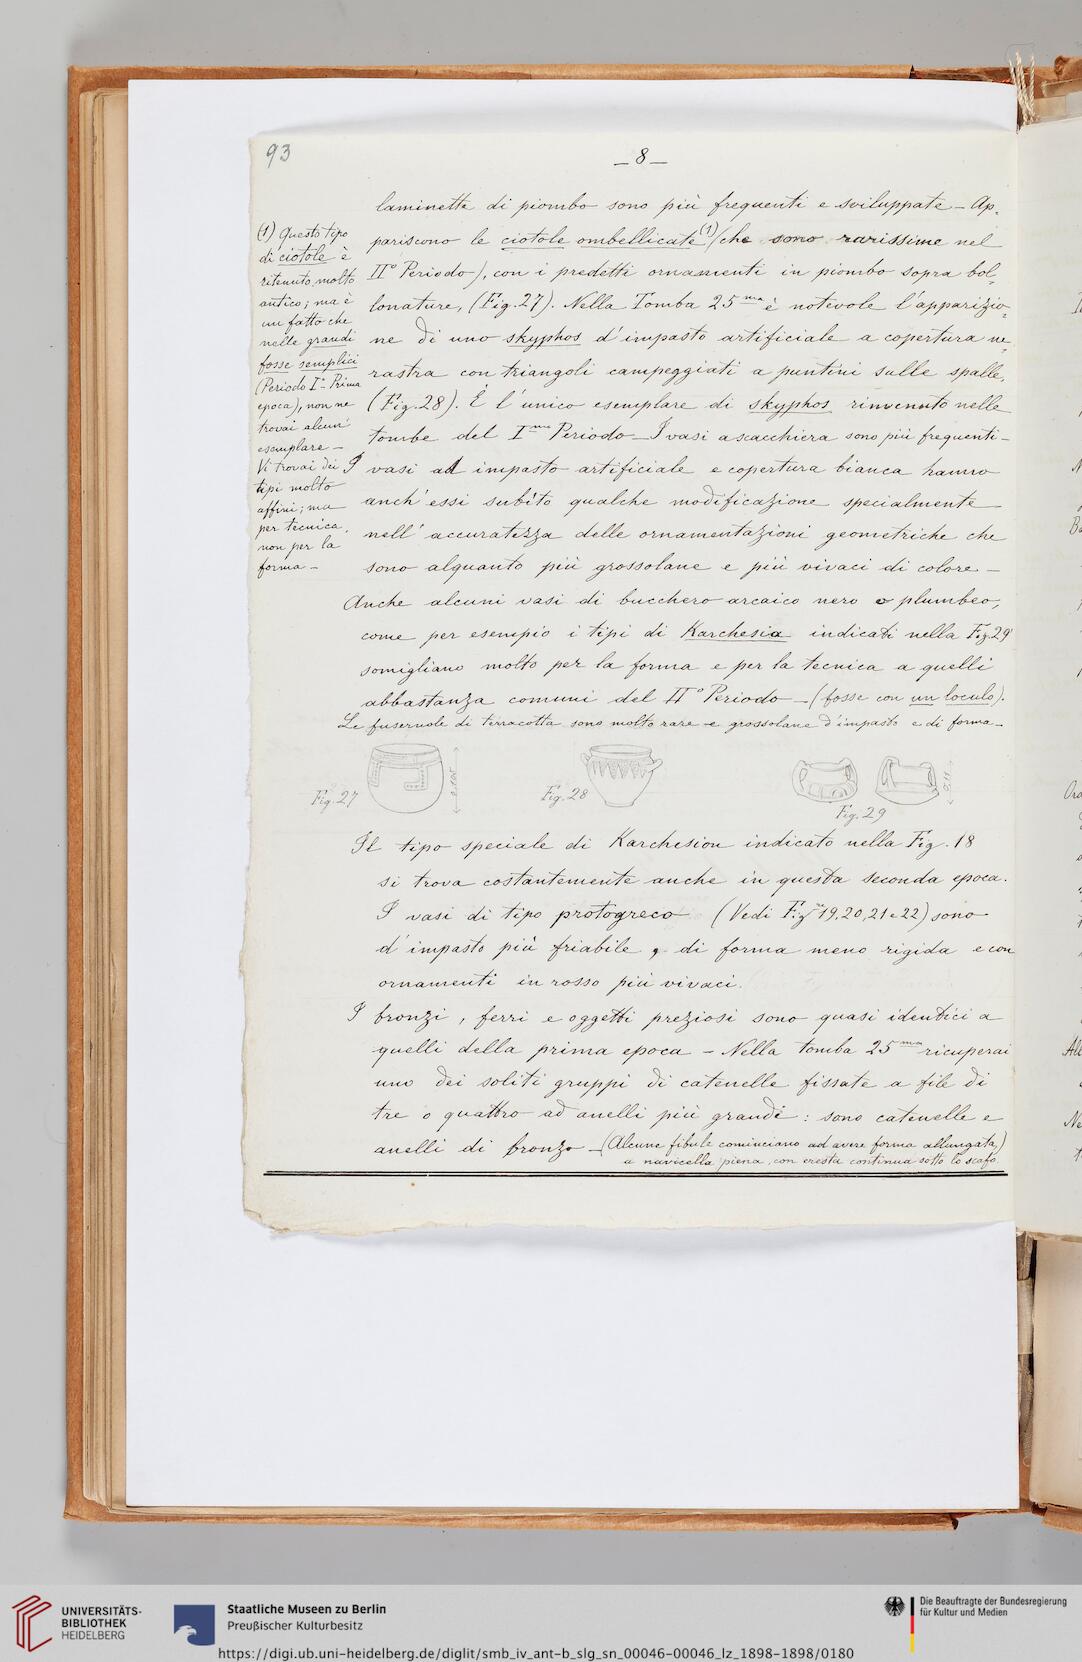 93
– 8 –
laminette di piombo sono più frequenti e sviluppate – Ap-
pariscono le ciotole ombellicate (1) (che sono rarissime nel
IIº Periodo), con i predetti ornamenti in piombo sopra bol-
lonature, (Fig. 27). Nella Tomba 25ma è notevole l'apparizio-
ne di uno skyphos d'impasto artificiale a copertura ne-
rastra con triangoli campeggiati a puntini sulle spalle,
(Fig. 28). È l'unico esemplare di skyphos rinvenuto nelle
tombe del Imo Periodo – I vasi a scacchiera sono più frequenti –
I vasi ad impasto artificiale e copertura bianca hanno
anch'essi subìto qualche modificazione specialmente
nell'accuratezza delle ornamentazioni geometriche che
sono alquanto più grossolane e più vivaci di colore –
Anche alcuni vasi di bucchero arcaico nero o plumbeo,
come per esempio i tipi di Karchesia indicati nella Fig. 29
somigliano molto per la forma e per la tecnica a quelli
abbastanza comuni del IIº Periodo – (fosse con un loculo).
Le fuseruole di terracotta sono molto rare e grossolane d'impasto e di forma –
(1) Questo tipo
di ciotole è
ritenuto molto
antico; ma è
un fatto che
nelle grandi
fosse semplici
(Periodo Iº – Prima
epoca), non ne
trovai alcun
esemplare –
Vi trovai dei
tipi molto
affini; ma
per tecnica,
non per la
forma –
Fig. 27
Fig. 28
Fig. 29
Il tipo speciale di Karchesion indicato nella Fig. 18
si trova costantemente anche in questa seconda epoca.
I vasi di tipo protogreco (Vedi Fig.re 19, 20, 21 e 22) sono
d'impasto più friabile, di forma meno rigida e con
ornamenti in rosso più vivaci.
I bronzi, ferri e oggetti preziosi sono quasi identici a
quelli della prima epoca – Nella tomba 25ma ricuperai
uno dei soliti gruppi di catenelle fissate a file di
tre o quattro ad anelli più grandi: sono catenelle e
anelli di bronzo – (Alcune fibule cominciano ad avere forma allungata,)
a navicella piena, con cresta continua sotto lo scafo.
UNIVERSITÄTS-
BIBLIOTHEK
HEIDELBERG
Staatliche Museen zu Berlin
Preußischer Kulturbesitz
Die Beauftragte der Bundesregierung
für Kultur und Medien
https://digi.ub.uni-heidelberg.de/diglit/smb_iv_ant-b_slg_sn_00046-00046_lz_1898-1898/0180